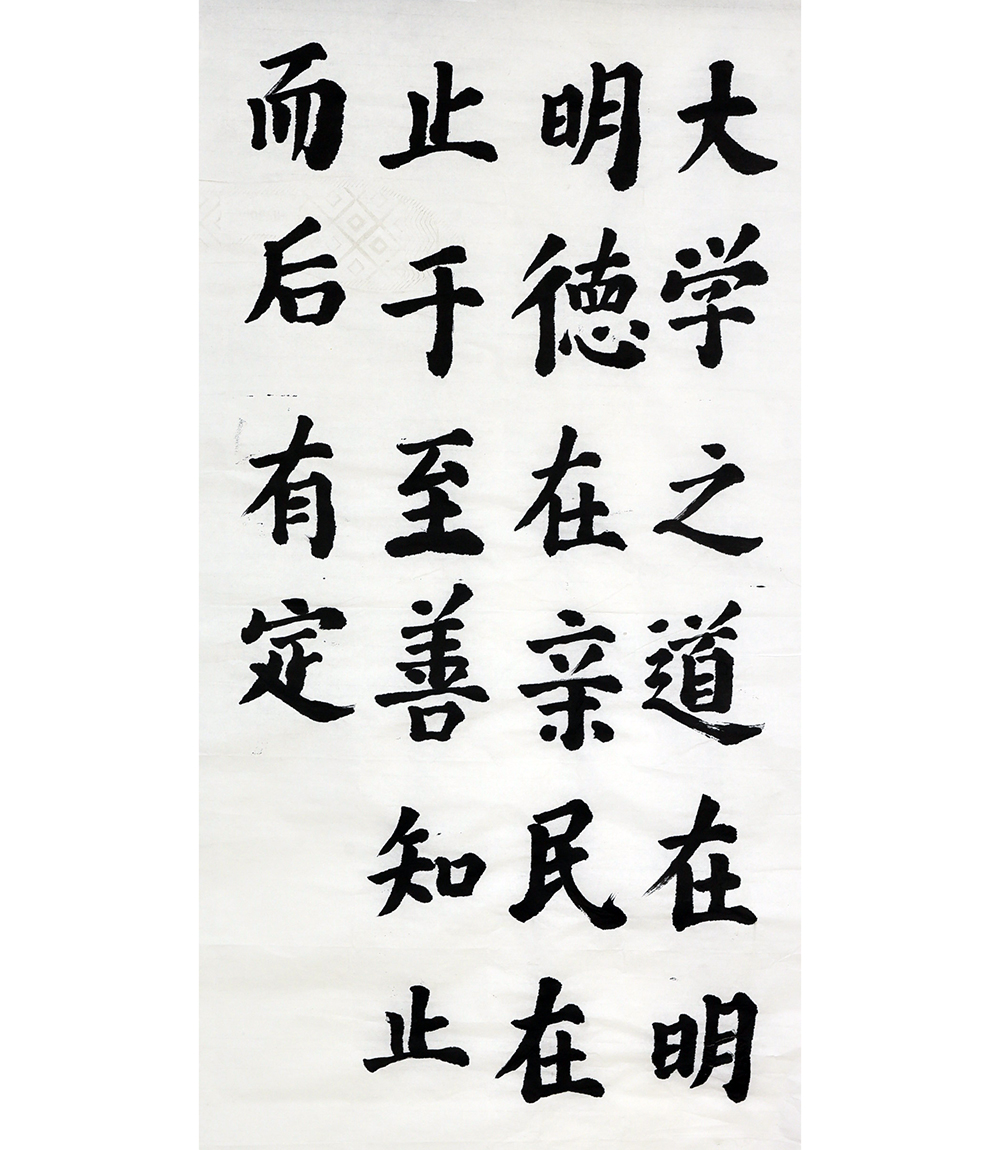 大学之道在明
明德在亲民在
止于至善知止
而后有定